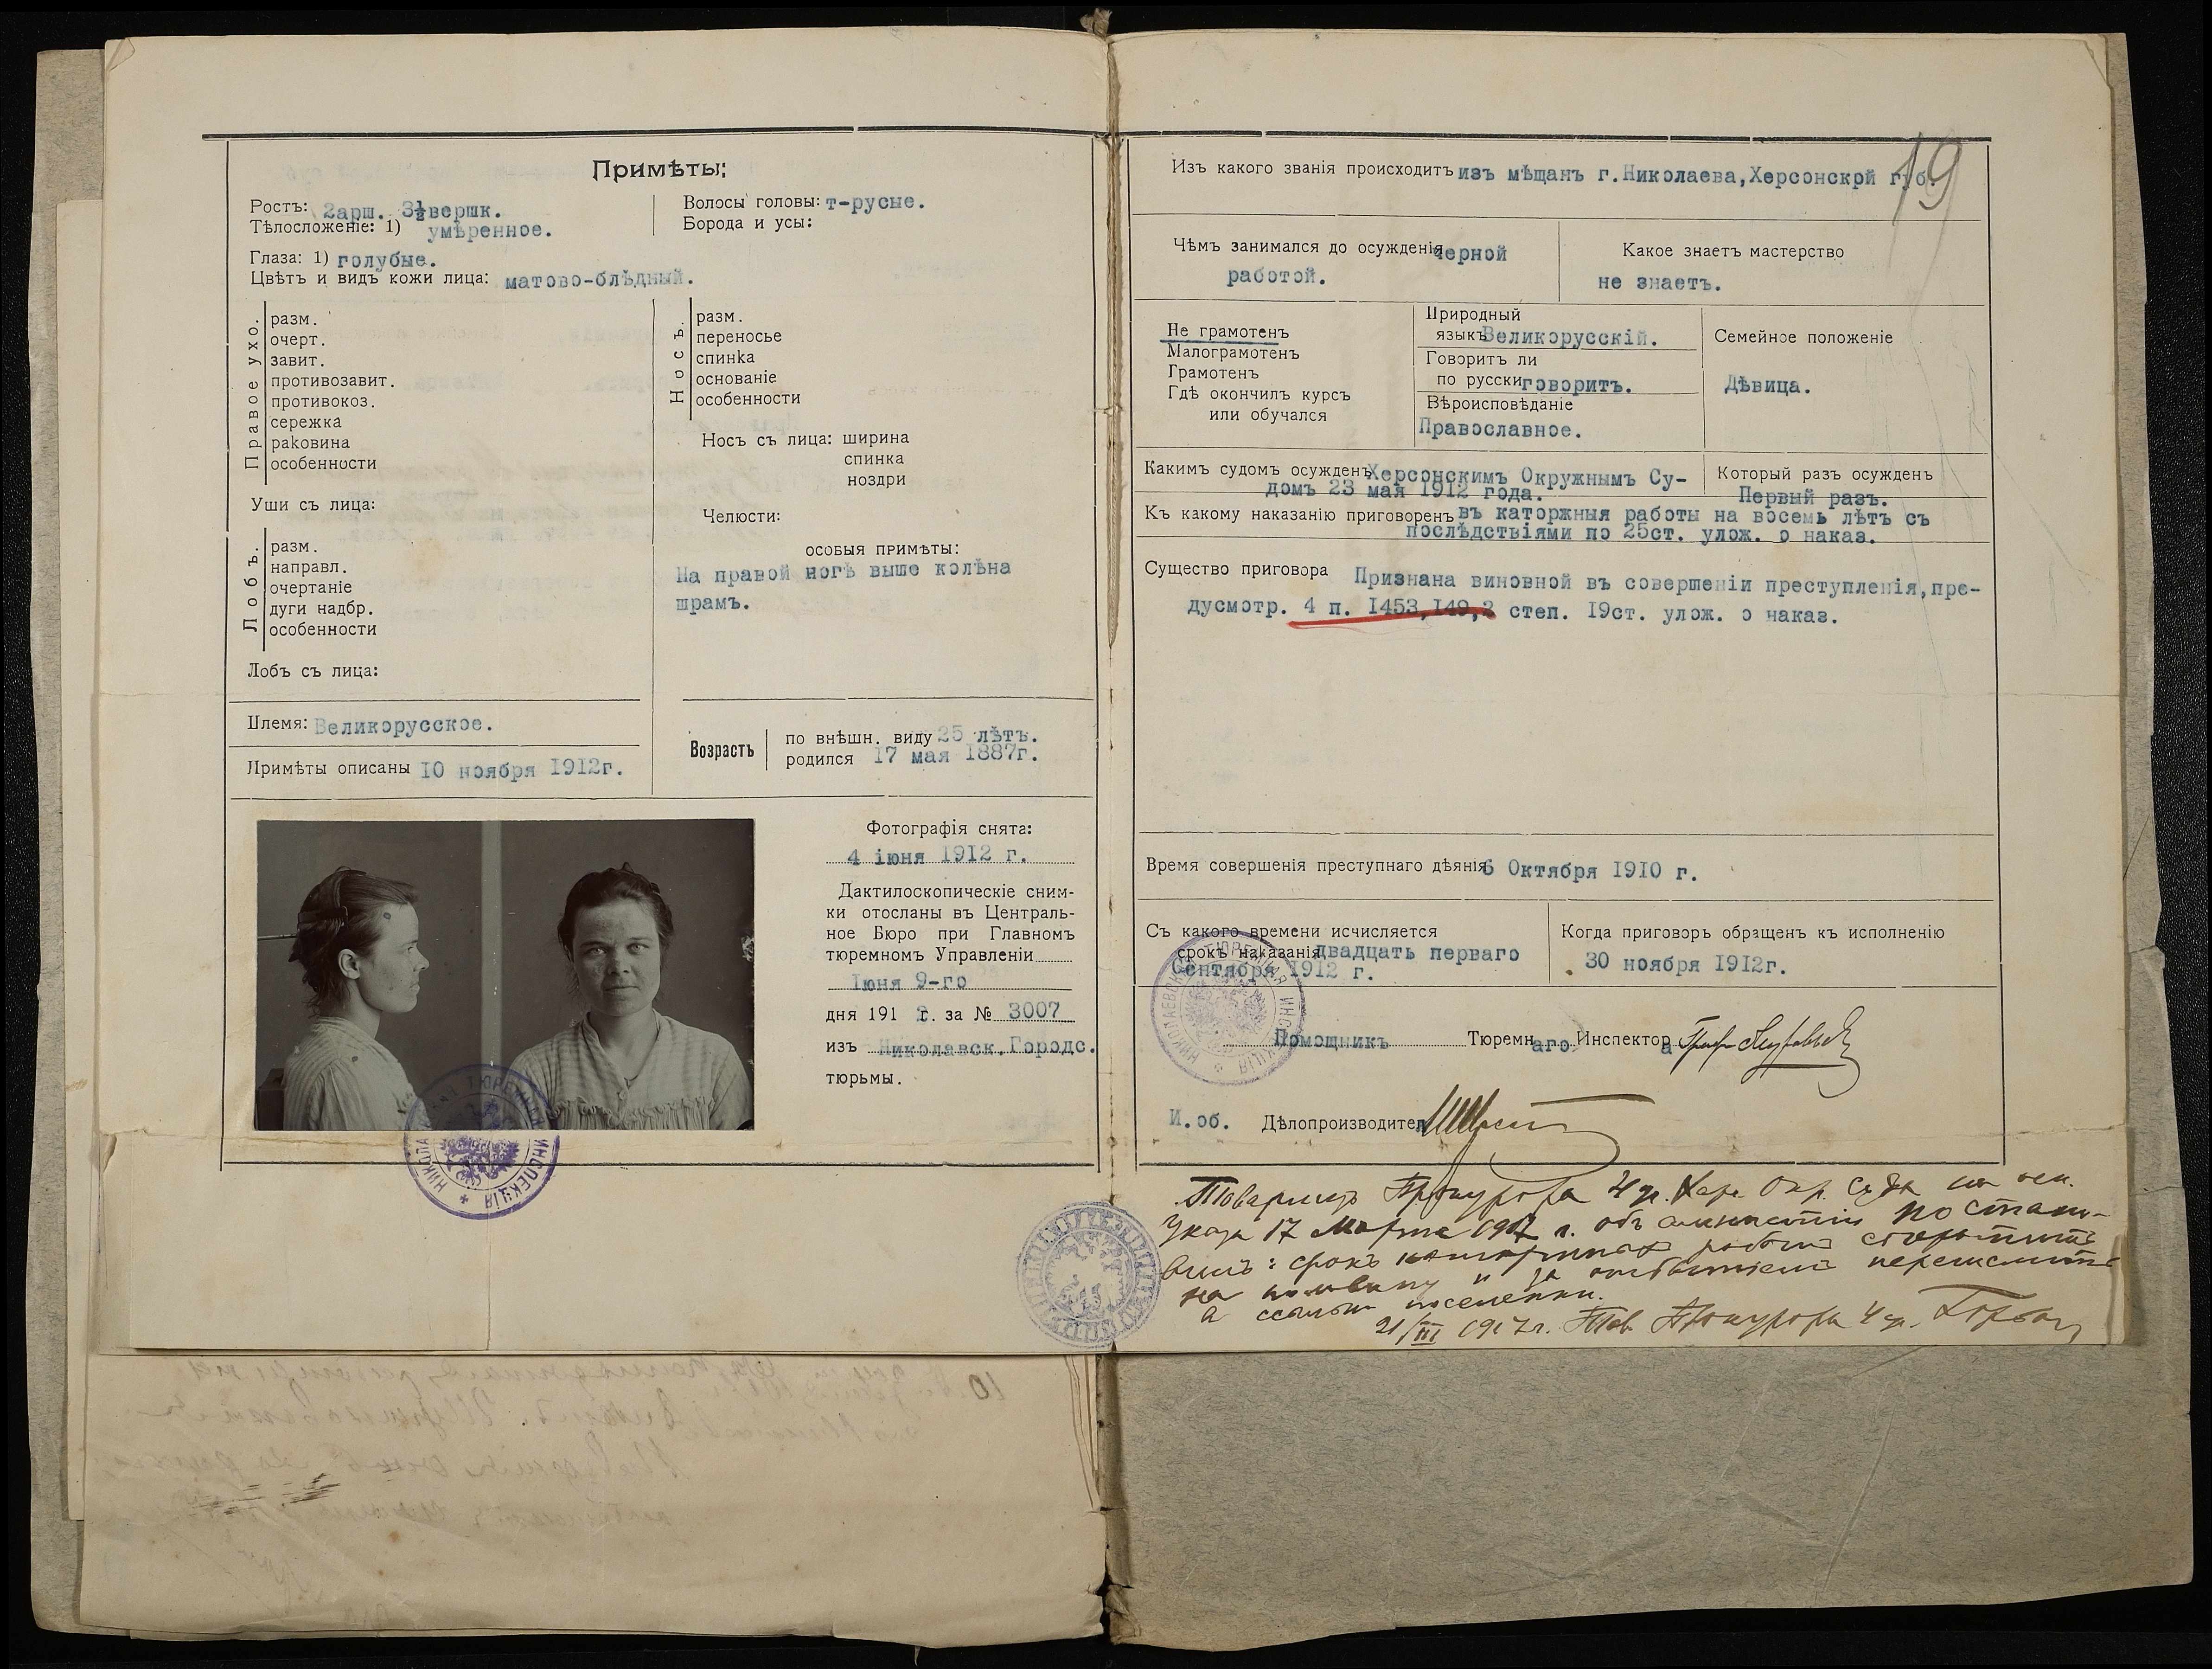 19
Примѣты:
Ростъ: 2арш. 3½вершк.
Тѣлосложеніе: 1) умѣренное.
Глаза: 1) голубые.
Цвѣтъ и видъ кожи лица: матово-блѣдный.
Волосы головы: т-русые.
Борода и усы:
Правое ухо.
разм.
очерт.
завит.
противозавит.
противокоз.
сережка
раковина
особенности
Носъ.
разм.
переносье
спинка
основаніе
особенности
Носъ съ лица: ширина
спинка
ноздри
Уши съ лица:
Челюсти:
Лобъ.
разм.
направл.
очертаніе
дуги надбр.
особенности
Лобъ съ лица:
особыя примѣты:
На правой ногѣ выше колѣна
шрамъ.
Племя: Великорусское.
Примѣты описаны 10 ноября 1912г.
Возрастъ
по внѣшн. виду 25 лѣтъ.
родился 17 мая 1887г.
Фотографія снята:
4 іюня 1912 г.
Дактилоскопическіе сним-
ки отосланы въ Централь-
ное Бюро при Главномъ
тюремномъ Управленіи
Іюня 9-го
дня 191 2. за № 3007
изъ Николавск.Городс.
тюрьмы.
Изъ какого званія происходитъ изъ мѣщанъ г.Николаева,Херсонскрй губ.
Чѣмъ занимался до осужденія черной
работой.
Какое знаетъ мастерство
не знаетъ.
Не грамотенъ
Малограмотенъ
Грамотенъ
Гдѣ окончилъ курсъ
или обучался
Природный
языкъ Великорусскій.
Говоритъ ли
по русски говоритъ.
Вѣроисповѣданіе
Православное.
Семейное положеніе
Дѣвица.
Какимъ судомъ осужденъ Херсонскимъ Окружнымъ Су-
домъ 23 мая 1912 года.
Который разъ осужденъ
Первый разъ.
Къ какому наказанію приговоренъ въ каторжныя работы на восемь лѣтъ съ
послѣдствіями по 25ст. улож. о наказ.
Существо приговора Признана виновной въ совершеніи преступленія,пре-
дусмотр. 4 п. 1453,149,2 степ. 19ст. улож. о наказ.
Время совершенія преступнаго дѣянія 6 Октября 1910 г.
Съ какого времени исчисляется
срокъ наказанія двадцать перваго
Сентября 1912 г.
Когда приговоръ обращенъ къ исполненію
30 ноября 1912г.
Помощникъ Тюремнаго Инспектора
И.об. Дѣлопроизводител
НИКОЛАЕВСКАЯ ТЮРЕМНАЯ ИНСПЕКЦІЯ
НИКОЛАЕВСКАЯ ТЮРЕМНАЯ ИНСПЕКЦІЯ
Товарищъ Прокурора 4 уч. Хар. Окр. Суда на осн.
Указа 17 Марта 1917 г. объ амнистіи постано-
вилъ: срокъ каторжныхъ работъ сократить
на половину и за отбытіемъ перечислить
в ссыльно поселенки.
21/III 1917г. Тов. Прокурора 4 уч.